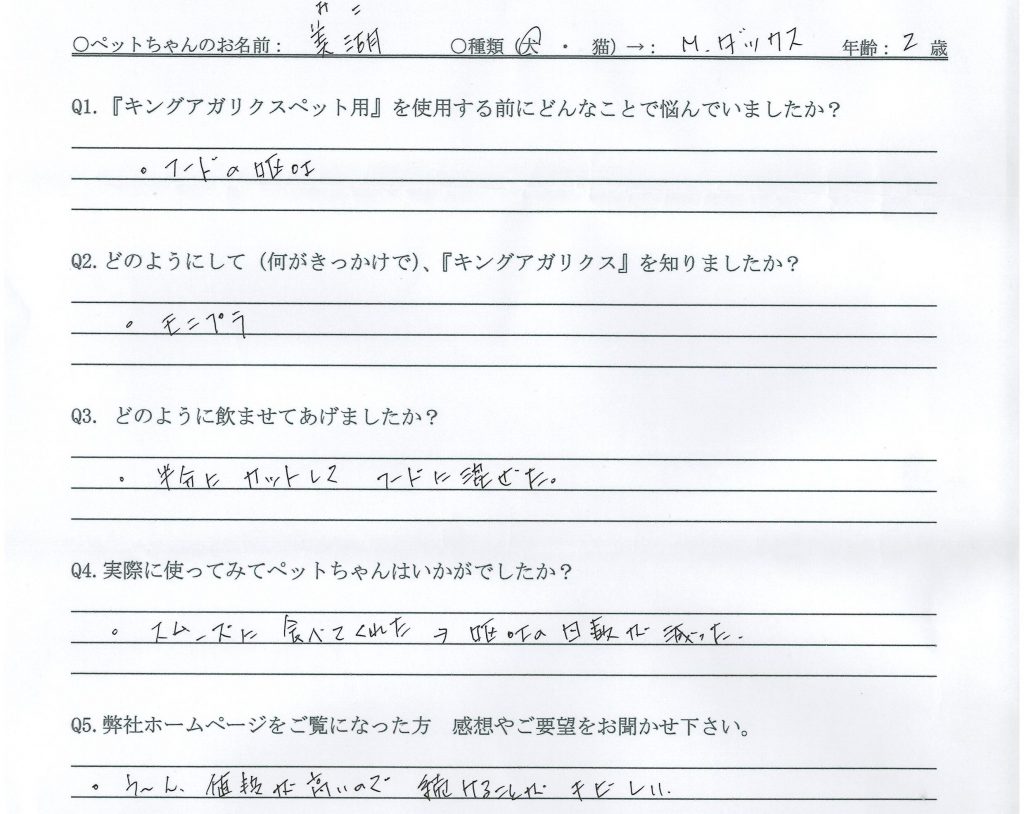 ○ペットちゃんのお名前： 美湖 ○種類（犬 ・ 猫）→： M.ダックス 年齢：2 歳
Q1.『キングアガリクスペット用』を使用する前にどんなことで悩んでいましたか？
。フードの嘔吐
Q2.どのようにして（何がきっかけで）、『キングアガリクス』を知りましたか？
。モニプラ
Q3. どのように飲ませてあげましたか？
。半分にカットして フードに混ぜた。
Q4.実際に使ってみてペットちゃんはいかがでしたか？
。スムーズに 食べてくれた → 嘔吐の日数が 減った.
Q5.弊社ホームページをご覧になった方 感想やご要望をお聞かせ下さい。
。う〜ん、値段が高いので 続けることが キビしい.